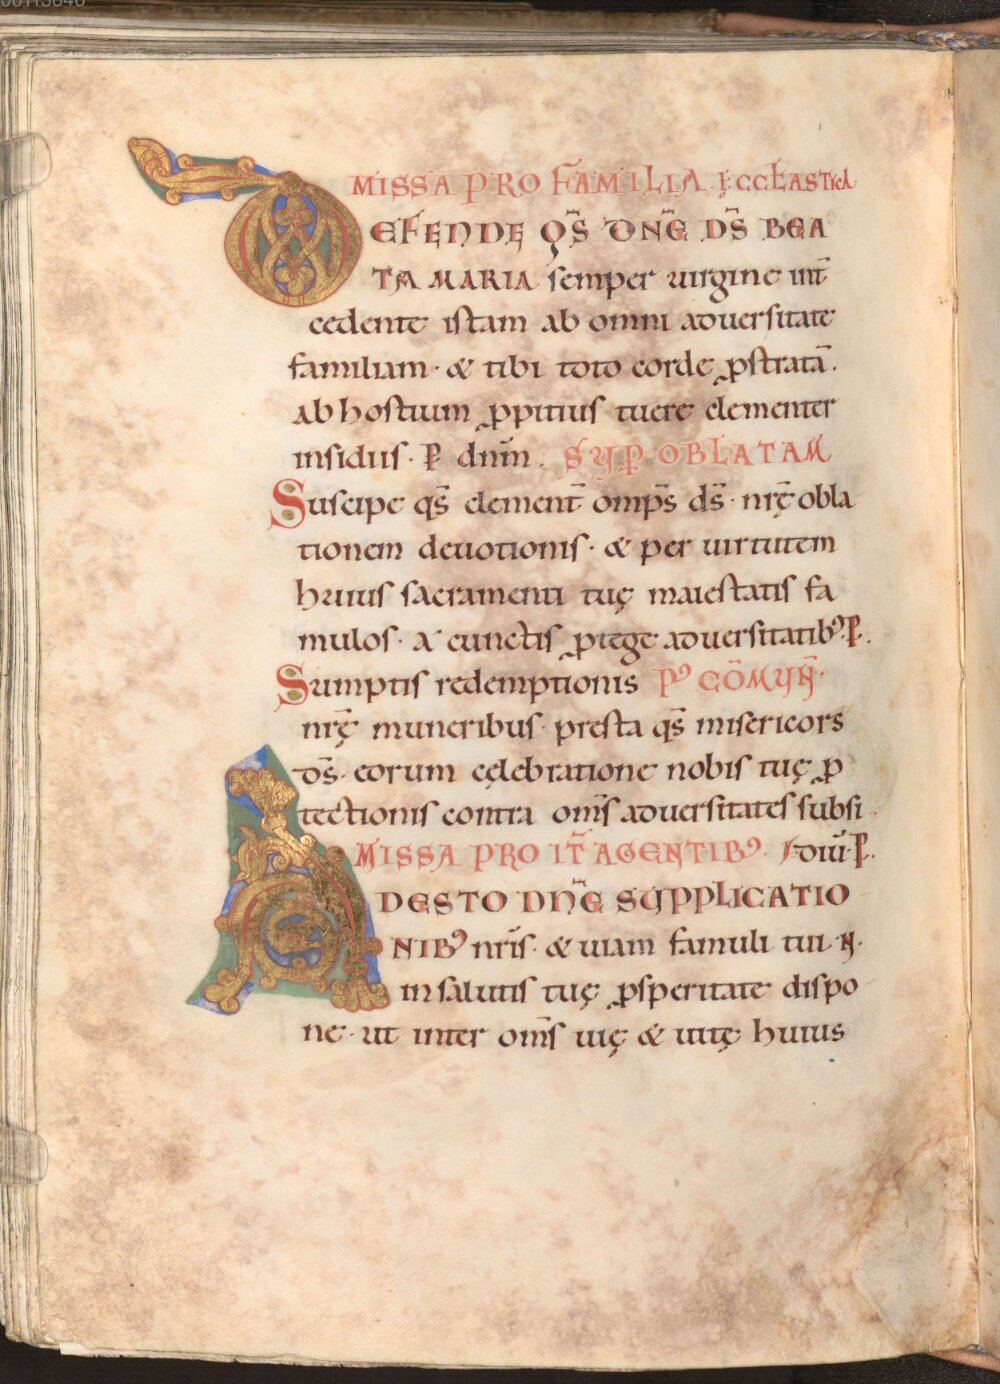 MISSA PRO FAMILIA ECCLEASTICA
DEFENDE QS̄ DN̄E DS̄ BEA
TA MARIA semper uirgine int̄
cedente istam ab omni aduersitate
familiam · & tibi toto corde ꝓstratā .
ab hostium ꝓpitius tuere clementer
insidiis · P̱ dnm̄ . SUP OBLATAM
Suscipe qs̄ clement̄ omps̄ ds̄ · nrę̄ obla
tionem deuotionis · & per uirtutem
huius sacramenti tuę maiestatis fa
mulos · A cunctis ꝓtege aduersitatibꝰ · P̱ .
Sumptis redemptionis Pꝰ COM̄UN̄ ·
nrę̄ muneribus · presta qs̄ misericors
ds̄ · eorum cęlebratione nobis tuę ꝓ
tectionis contra oms̄ aduersitates subsi
MISSA PRO IT̄ AGENTIBꝰ · diū · P̱ .
ADESTO DN̄E SUPPLICATIO
NIBꝰ nrīs · & uiam famuli tui · N ·
in salutis tuę ꝓsperitate dispo
ne · ut inter oms̄ uię & uitę huius